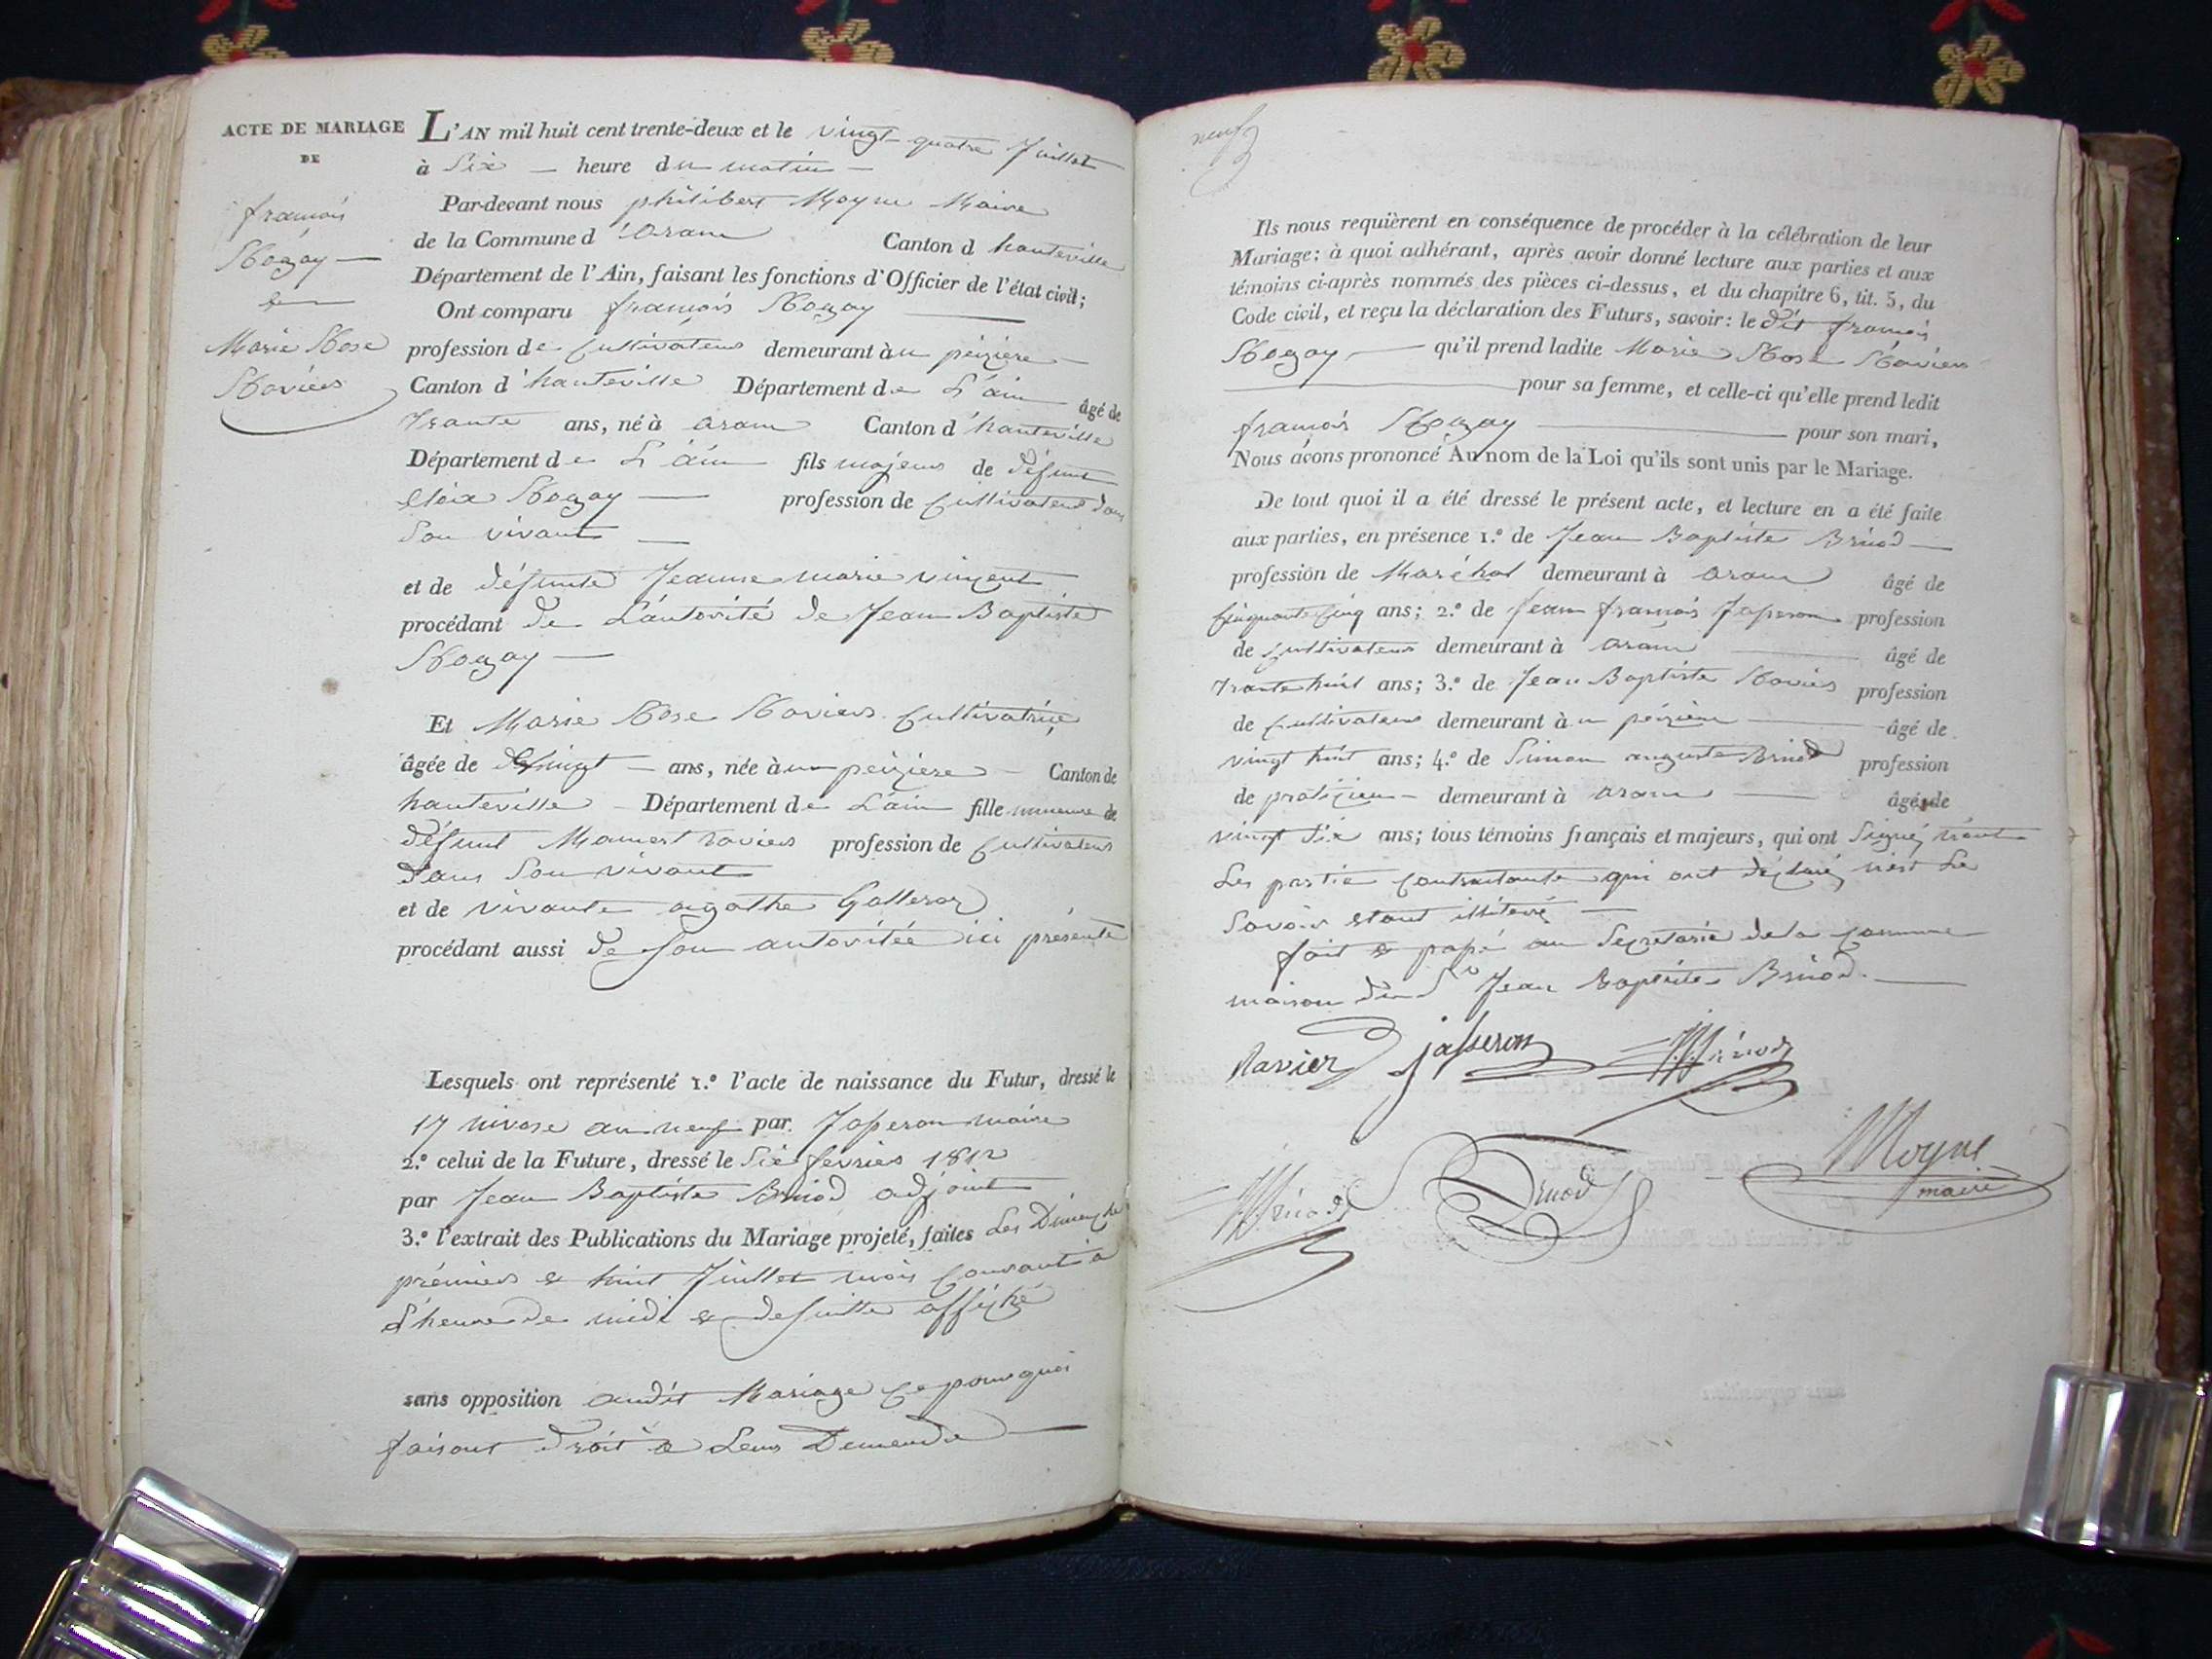 ACTE DE MARIAGE
DE
françois
Rogay
&
Marie Rose
Raviers
L'AN mil huit cent trente-deux et le vingt quatre Juillet
à Six heure du matin
Par-devant nous philibert Moyne Maire
de la Commune d'aranc Canton d hauteville
Département de l'Ain, faisant les fonctions d'Officier de l'état civil;
Ont comparu françois Rogay
profession de Cultivateur demeurant à peizière
Canton d'hauteville Département de L'ain âgé de
Trante ans, né à aranc Canton d'hauteville
Département de L'ain fils majeur de défunt
Rogay profession de Cultivateur dans
Son vivant
et de défunte Jeanne marie vinçent
procédant de L'autorité de Jean Baptiste
Rogay
Et Marie Rose Raviers Cultivatriçe
âgée de vingt ans, née à peiziere Canton de
hauteville Département de L'ain fille mineure de
défunt Mamert raviers profession de Cultivateur
dans Son vivant
et de vivante agathe
procédant aussi de Son autoritée ici présente
Lesquels ont représenté 1.º l'acte de naissance du Futur, dressé le
17 nivose an neuf par Jasseron maire
2.º celui de la Future, dressé le Six fevrier 1812
par Jean Baptiste Brüod adjoint
3.º l'extrait des Publications du Mariage projeté, faites Les Dimençhe
prémier & huit Juillet mois Courant à
L'heure de midi & de suitte affiçhé
sans opposition audit Mariage Ce pourquoi
faisant droit à Leur Demende
neuf
Ils nous requièrent en conséquence de procéder à la célébration de leur
Mariage: à quoi adhérant, après avoir donné lecture aux parties et aux
témoins ci-après nommés des pièces ci-dessus, et du chapitre 6, tit. 5, du
Code civil, et reçu la déclaration des Futurs, savoir: le dit françois
Rogay qu'il prend ladite Marie Rose Raviers
pour sa femme, et celle-ci qu'elle prend ledit
françois Rogay pour son mari,
Nous avons prononcé Au nom de la Loi qu'ils sont unis par le Mariage.
De tout quoi il a été dressé le présent acte, et lecture en a été faite
aux parties, en présence 1.º de Jean Baptiste Brüod
profession de Maréhal demeurant à aranc âgé de
Cinquante Cinq ans; 2.º de Jean françois Jasseron profession
de Cultivateur demeurant à aranc âgé de
Trante huit ans; 3.º de Jean Baptiste Raviers profession
de Cultivateur demeurant à peizière âgé de
vingt huit ans; 4.º de Simon auguste Brüod profession
de pratiçien demeurant à aranc âgé de
vingt Six ans; tous témoins français et majeurs, qui ont Signé,
Les partie Contractante qui ont déçlaré, Le
Savoir etant illiteré
fait & passé au Seçrétariat de la Commune
maison du Sr Jean Baptiste Brüod.
Ravier Jasseron
Bruod Moyne
maire